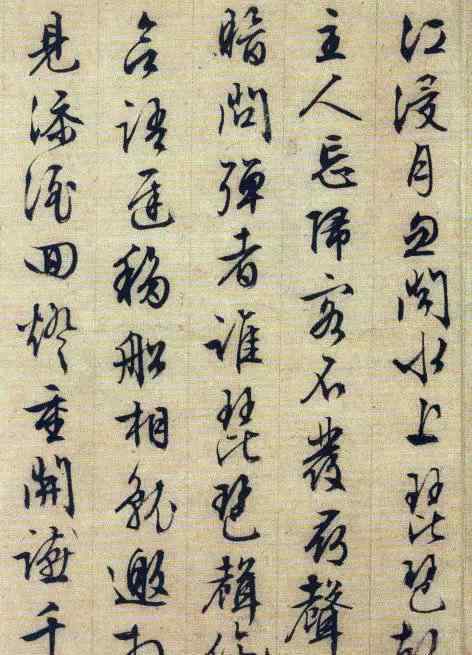 江浸月忽聞水上琵琶
主人忘歸客不發尋聲
暗問彈者誰琵琶聲
欲語遲移船相就邀
見添酒回燈重開讌千